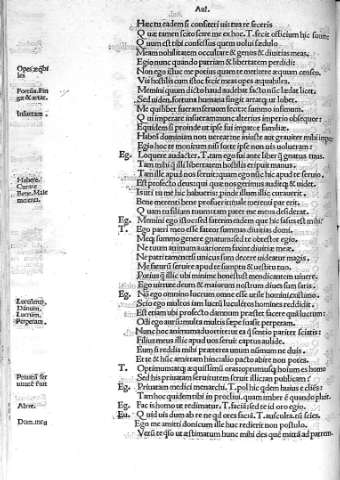 Aul.
Huc tu eadem si confiteri uis tua re feceris
Quæ tamen scito scire me ex hoc. T. fecit officium hic suum:
Quom est tibi confessus uerum
Meam nobilitatem occultare & genus & diuitias meas,
Ego nunc quando patriam & libertatem perdidi
Non ego illuc me potius quam te metuere æquum censeo.
Vis hostilis cum istoc fecit meas opes æquabiles.
Memini quum dicto haud audebat facto nūc lædat licet.
Sed uiden fortuna humana fingit artatq; ut lubet.
Me qui liber fueram seruum fecit: e summo infimum.
Qui imperare insueram nunc alterius imperio obsequor:
Equidem si proinde ut ipse fui imperator familiæ
Habeo dominum non uerear ne iniuste aut grauiter mihi imperet
Egio hoc te monitum nisi forte ipse non uis uolueram:
Eg. Loquere audacter. T. tam ego fui ante liber q̄ gnatus tuus.
Tam mihi q̄ illi libertatem hostilis eripuit manus:
Tam ille apud nos seruit: quam ego nūc hic apud te seruio.
Est profecto deus: qui quæ nos gerimus auditq; & uidet.
Is uti tu me hic habueris: proinde illum illic curauerit
Bene merenti bene profuerit: male merenti par erit.
Quam tu filium tuum tam pater me meus desiderat.
Eg. Memini ego istoc: sed faterin eadem quæ hic fassus est mihi
T. Ego patri meo esse fateor summas diuitias domi.
Meq; summo genere gnatum: sed te obsecro egio.
Ne tuum animum auariorem faxint diuitiæ meæ.
Ne patri tametsi unicus sum decere uideatur magis.
Me saturū seruire apud te sumptu & uestitu tuo.
Potius q̄ illic ubi minime honestū est mendicantem uiuere.
Ego uirtute deum & maiorum nostrum diues sum satis.
Eg. Nō ego omnino lucrum omne esse utile homini existimo
Scio ego multos iam lucrū luculētos homines reddidit.
Est etiam ubi profecto damnum præstet facere quā lucrum:
Odi ego aurū: multa multis sæpe suasit perperam.
Nunc hoc animum aduortite: ut ea q̄ sentio pariter sciatis:
Filius meus illic apud uos seruit captus aulide.
Eum si reddis mihi præterea unum nūmum ne duis.
Et te & hūc amittam hinc: alio pacto abire non potes.
T. Optimum atq; æquissimū oras: optumusq; hominū es homo
Sed his priuatam seruitutem seruit illi: an publicam?
Eg. Priuatam medici menarchi. T. pol hic qdem huius e cliēs:
Tam hoc quidem tibi in procliui, quam imber ē quando pluit.
Eg. Fac is homo ut redimatur. T. faciā: sed te id oro egio.
Eg. Quid uis dum ab re ne qd ores faciā. T. ausculta: tū scies.
Ego me amitti donicum ille huc redierit non postulo.
Verū te q̄so ut æstimatum hunc mihi des quē mittā ad patrem
Insueram.
Habere.
Curare
Bene. Male
mereri.
Damnum.
Lucrum.
Perperam.